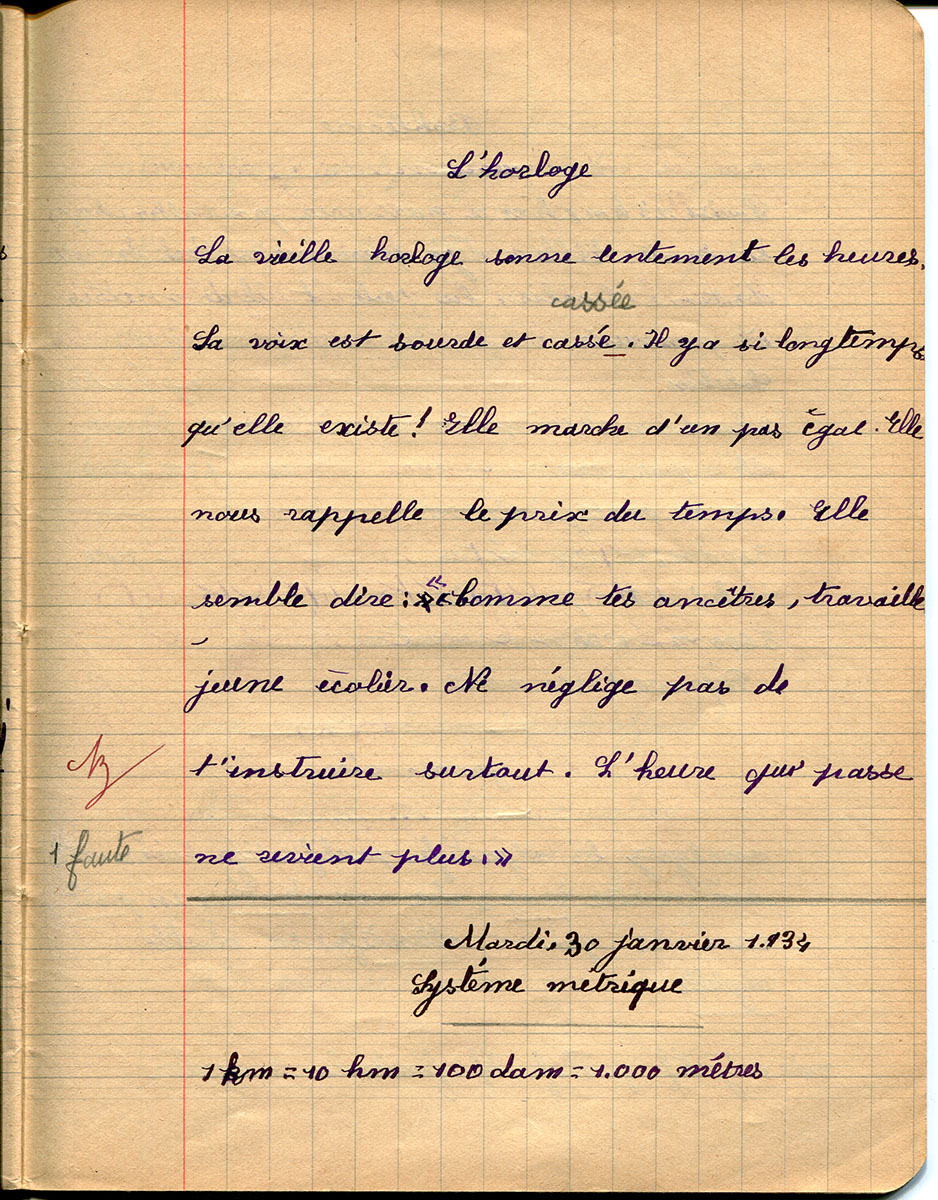 L'horloge
La vieille horloge sonne lentement les heures.
cassée
Sa voix est sourde et cassé. Il y a si longtemps
qu'elle existe! Elle marche d'un pas égal. Elle
nous rappelle le prix du temps. Elle
semble dire: «Comme tes ancêtres, travaille
jeune écolier. Ne néglige pas de
t'instruire surtout. L'heure qui passe
1 faute
ne revient plus.»
Mardi, 30 janvier 1.934
Systéme métrique
1 km = 10 hm = 100 dam = 1.000 métres